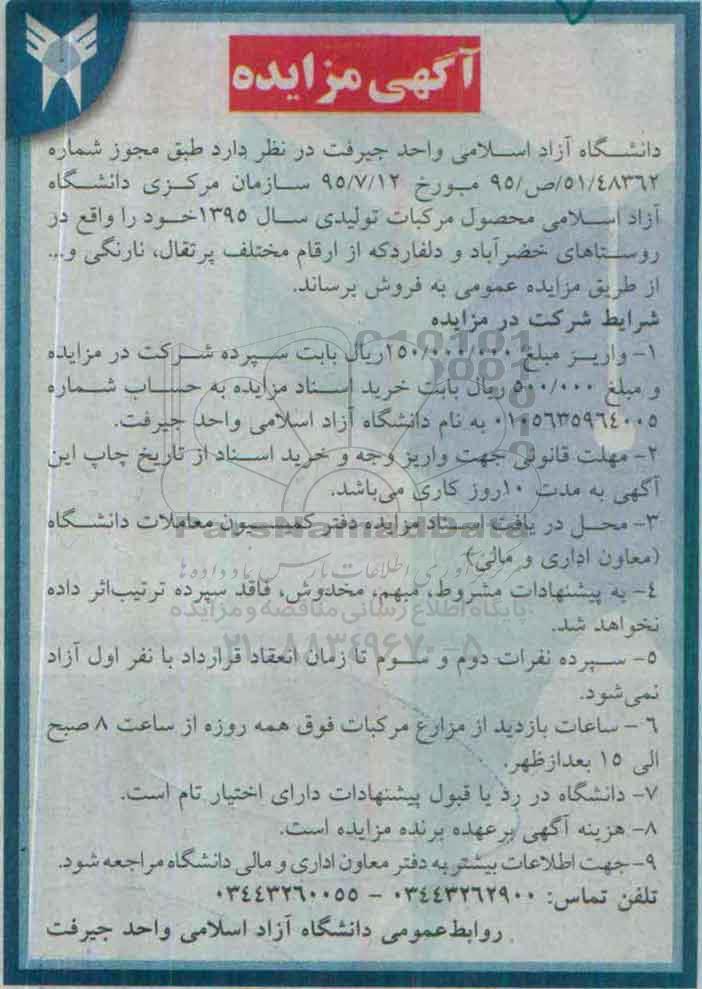 آگهی مزایده
دانشگاه آزاد اسلامی واحد جیرفت در نظر دارد طبق مجوز شماره
۵۱/٤۸۳٦۲/ص/۹۵ مورخ ۹۵/۷/۱۲ سازمان مرکزی دانشگاه
آزاد اسلامی محصول مرکبات تولیدی سال ۱۳۹۵خود را واقع در
روستاهای خضرآباد و دلفاردکه از ارقام مختلف پرتقال، نارنگی و...
از طریق مزایده عمومی به فروش برساند.
شرایط شرکت در مزایده
۱- واریز مبلغ ۱۵۰/۰۰۰/۰۰۰ریال بابت سپرده شرکت در مزایده
و مبلغ ۵۰۰/۰۰۰ ریال بابت خرید اسناد مزایده به حساب شماره
۰۱۰۵٦۳۵۹٦٤۰۰۵ به نام دانشگاه آزاد اسلامی واحد جیرفت.
۲- مهلت قانونی جهت واریز وجه و خرید اسناد از تاریخ چاپ این
آگهی به مدت ۱۰روز کاری می‌باشد.
۳- محل دریافت اسناد مزایده دفتر کمیسیون معاملات دانشگاه
(معاون اداری و مالی)
٤- به پیشنهادات مشروط، مبهم، مخدوش، فاقد سپرده ترتیب‌اثر داده
نخواهد شد.
۵- سپرده نفرات دوم و سوم تا زمان انعقاد قرارداد با نفر اول آزاد
نمی‌شود.
٦- ساعات بازدید از مزارع مرکبات فوق همه روزه از ساعت ۸ صبح
الی ۱۵ بعدازظهر.
۷- دانشگاه در رد یا قبول پیشنهادات دارای اختیار تام است.
۸- هزینه آگهی برعهده برنده مزایده است.
۹- جهت اطلاعات بیشتر به دفتر معاون اداری و مالی دانشگاه مراجعه شود.
تلفن تماس: ۰۳٤٤۳۲٦۲۹۰۰ - ۰۳٤٤۳۲٦۰۰۵۵
روابط‌عمومی دانشگاه آزاد اسلامی واحد جیرفت
ParsNamadData
مرکز فرآوری اطلاعات پارس نماد داده ها
پایگاه اطلاع رسانی مناقصه و مزایده
۰۲۱-۸۸۳۴۹۶۷۰-۵